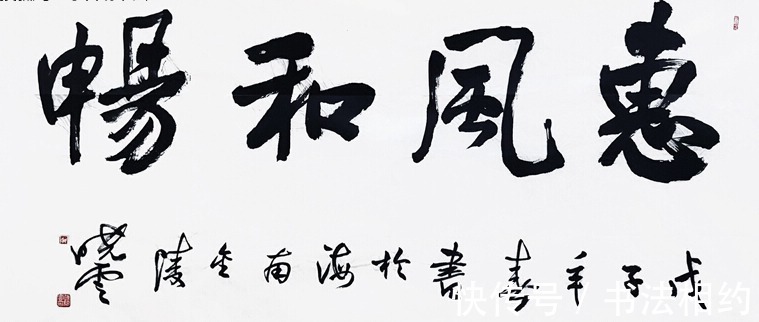 惠風和暢
戊子年春書於海南金陵
曉雲
快传号 / 书法相约